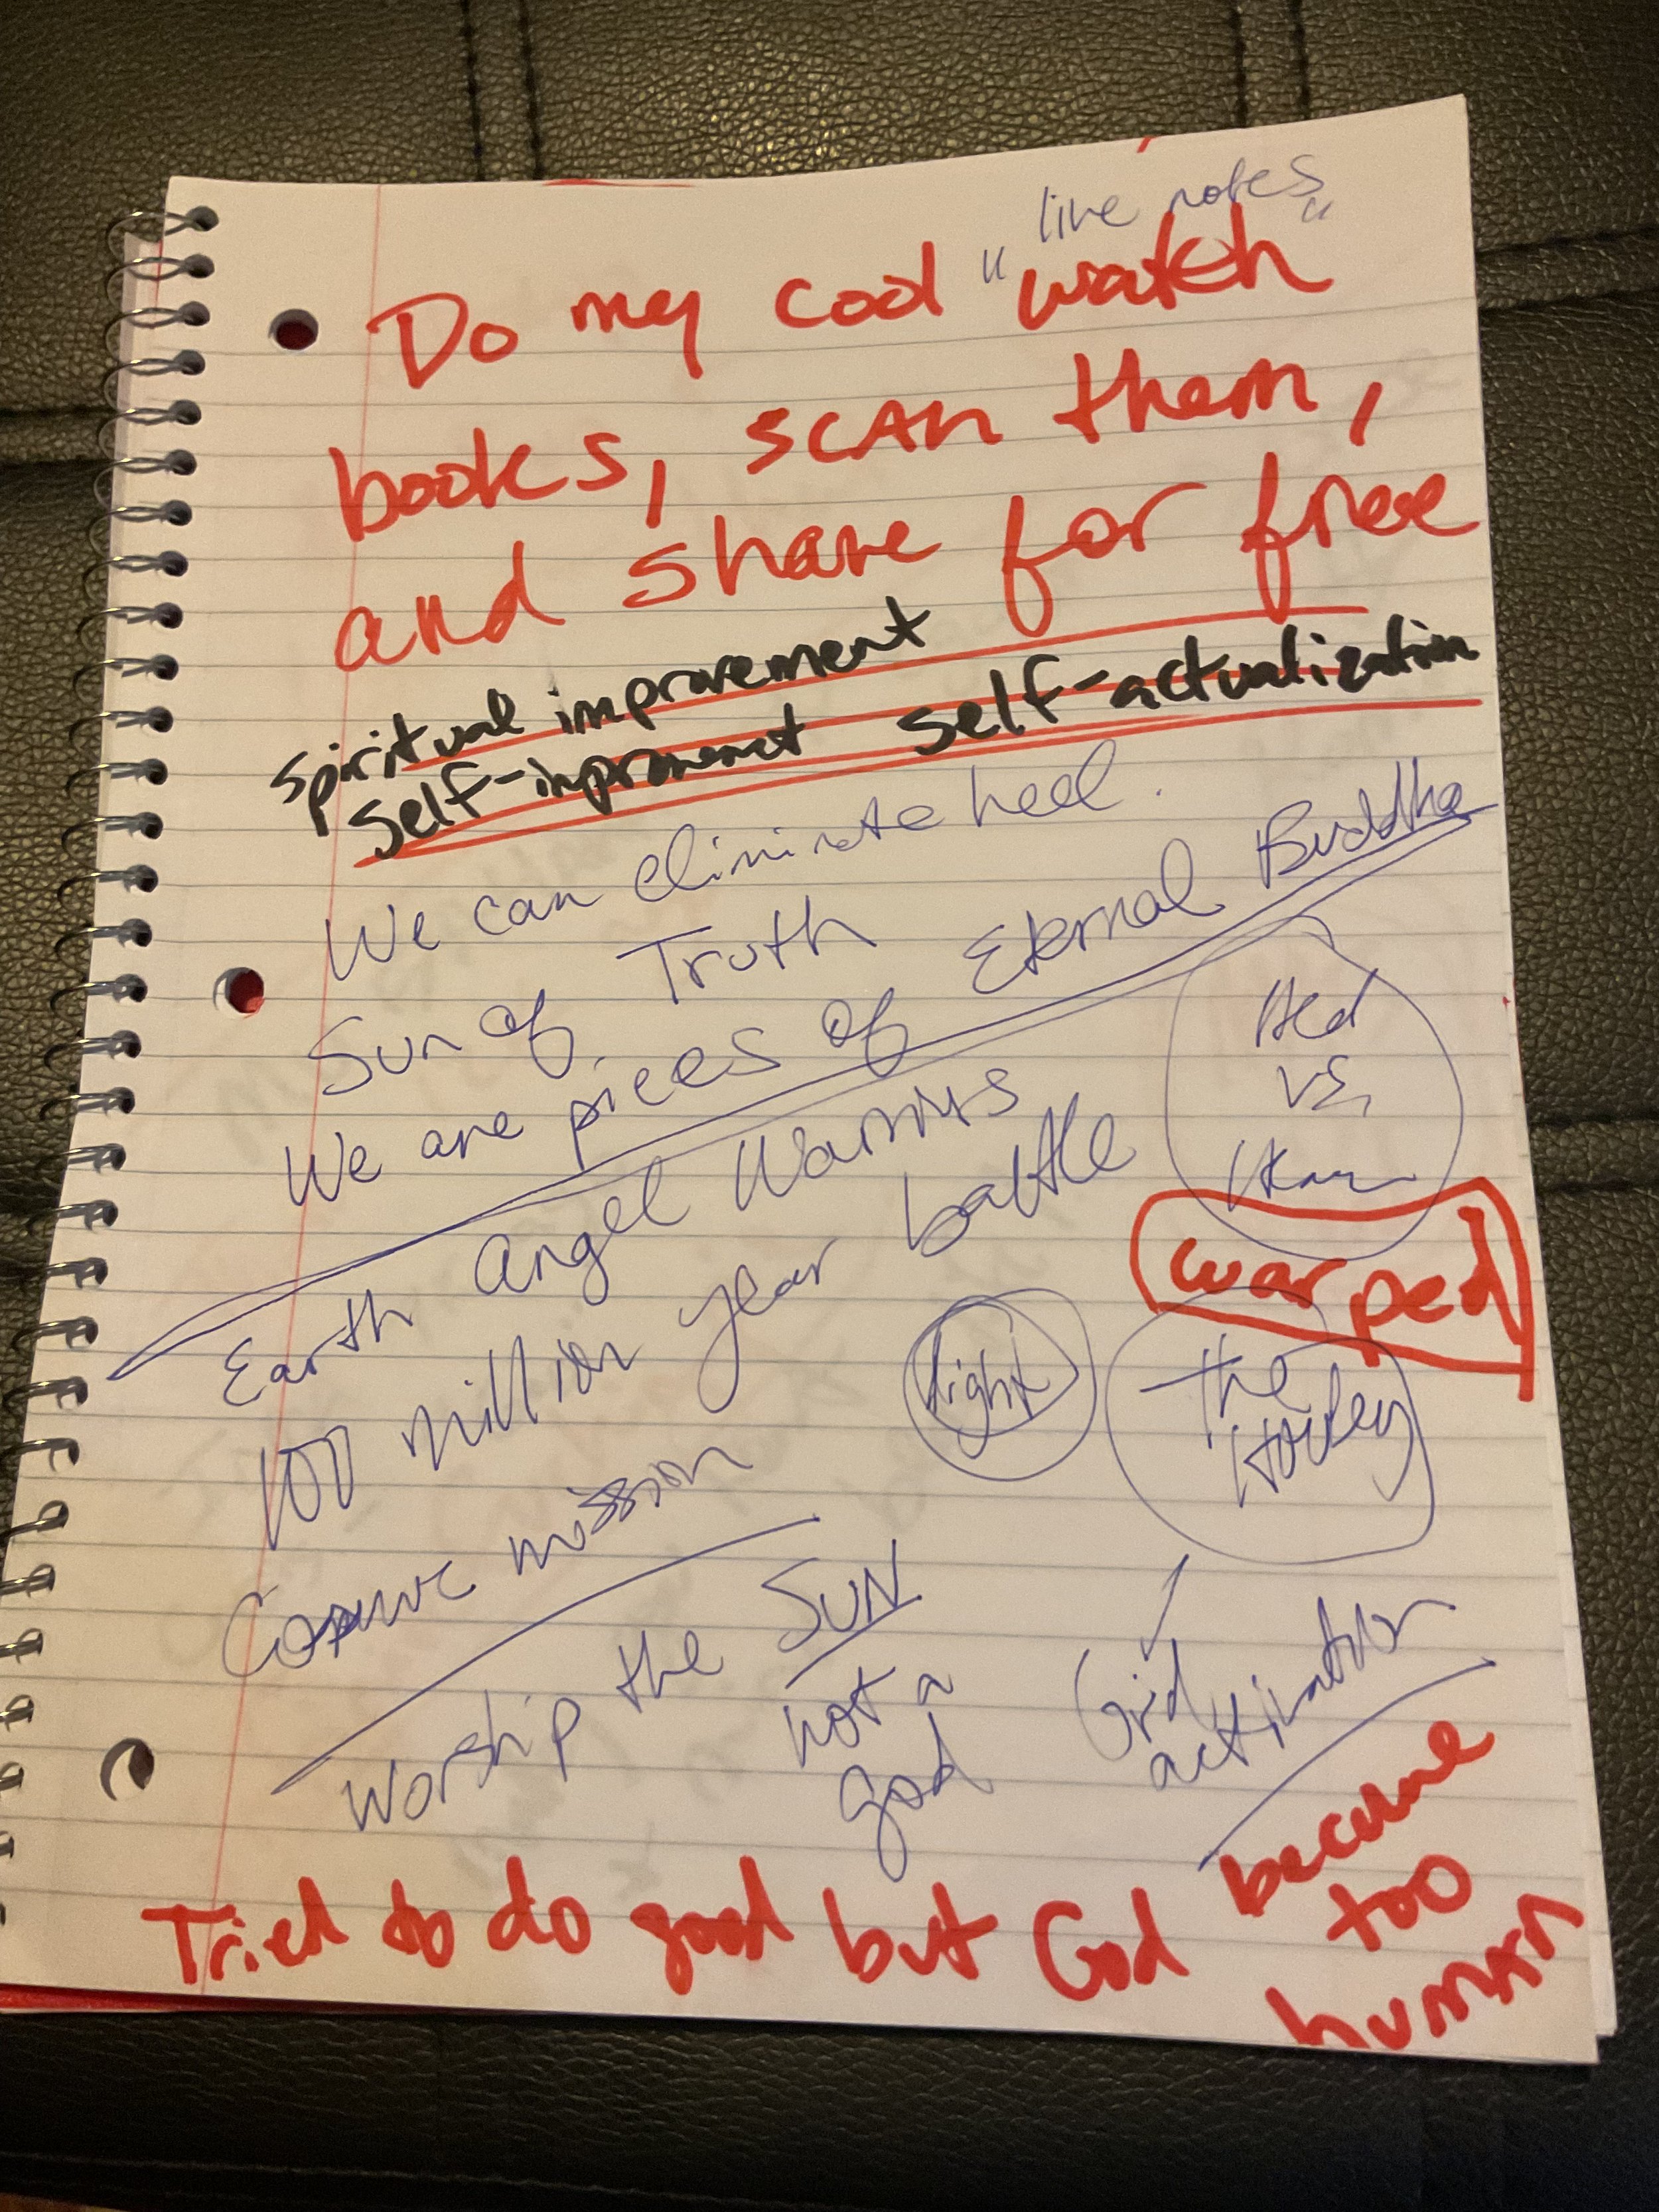 "live notes"
Do my cool "watch"
books, scan them,
and share for free
spiritual improvement
self-improvment self-actualization
We can eliminate heel.
Sun of Truth
We are pieces of Eternal Buddha
Hed
vs.
Earth Angel Warriors
100 million year battle
warped
light
the
mission
Worship the SUN
not a
god
Grid
activation
Tried to do good but God
become
too
human